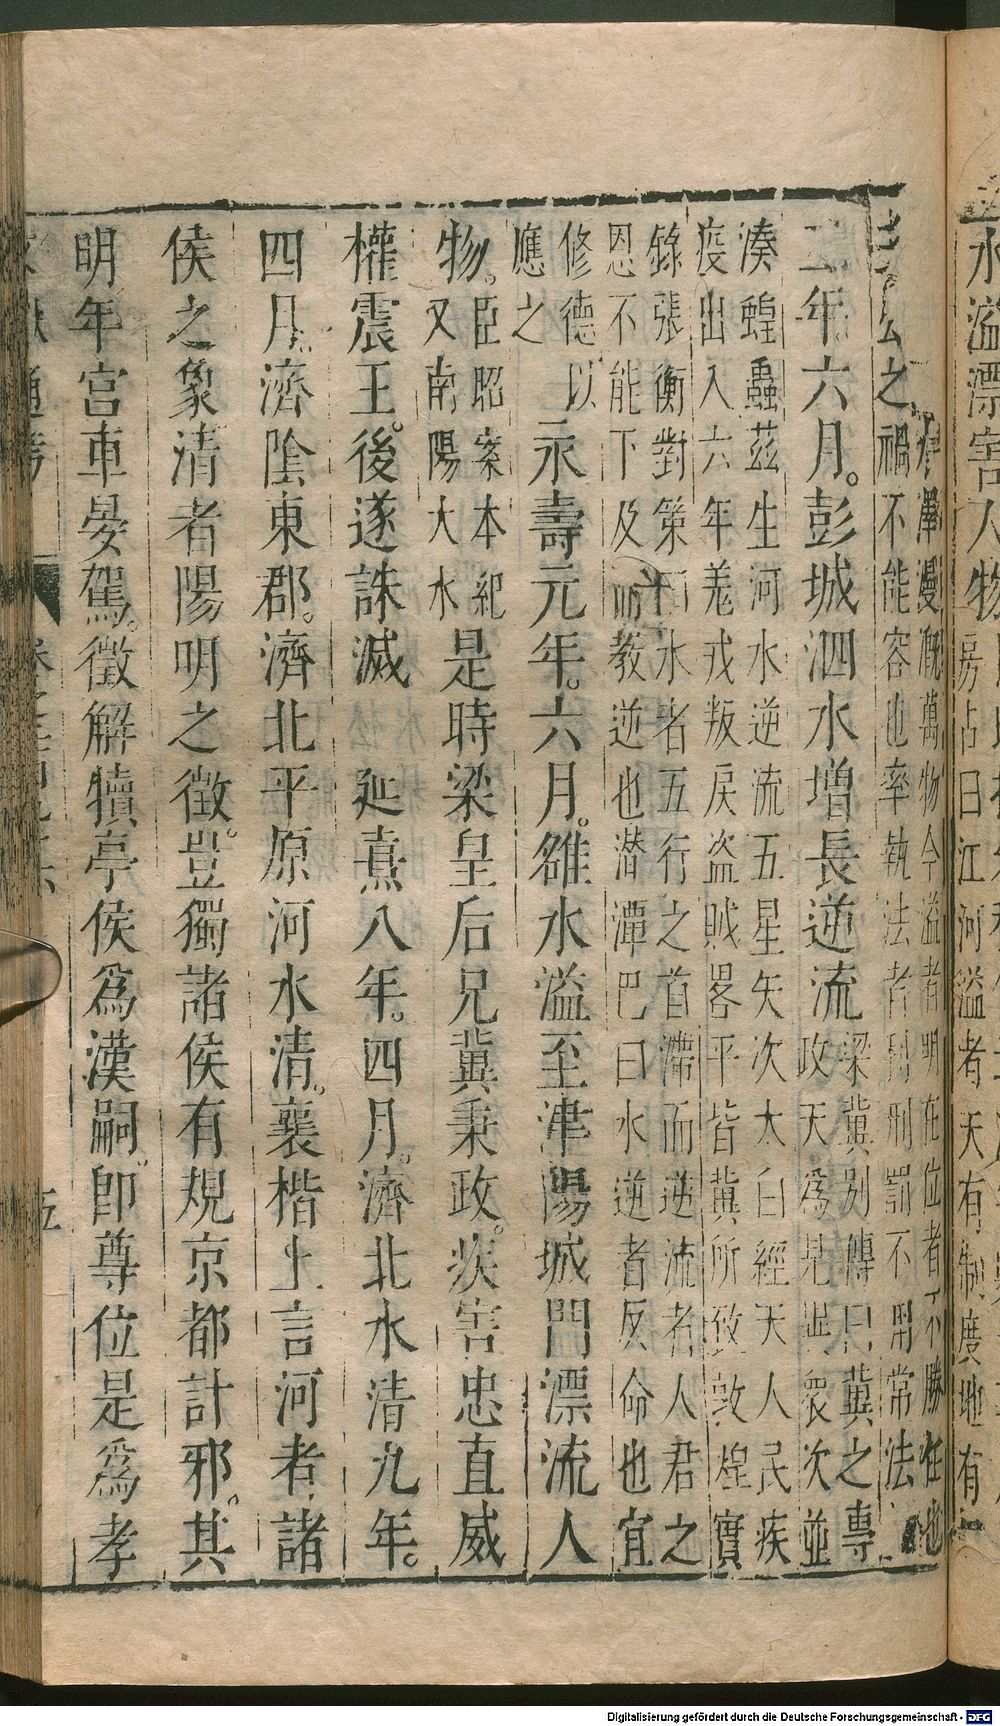 永溢漂害人物
房占曰江河溢者天有制度地有
澤漫溉萬物今溢者明在位者不勝任也
之禍不能容也率執法者利刑罰不用常法
二年六月。彭城泗水增長逆流
梁冀別傳曰冀之專
政天為見異衆次並
湊蝗蟲茲生河水逆流五星失次太白經天人民疾
疫出入六年羌戎叛戾盜賊畧平皆冀所致敦煌實
錄張衡對策水者五行之首滯而逆流者人君之
恩不能下及而教逆也潛潭巴曰水逆者反命也宜
修德以
應之
永壽元年。六月。雒水溢至津陽城門漂流人
物。
臣昭案本紀
又南陽大水
是時梁皇后兄冀秉政。疾害忠直威
權震王。後遂誅滅 延熹八年。四月。濟北水清九年。
四月。濟陰東郡。濟北平原河水清。襄楷上言河者諸
侯之象清者陽明之徵。豈獨諸侯有規京都計邪。其
明年宮車晏駕。徵解犢亭侯爲漢嗣。即尊位是爲孝
Digitalisierung gefördert durch die Deutsche Forschungsgemeinschaft - DFG